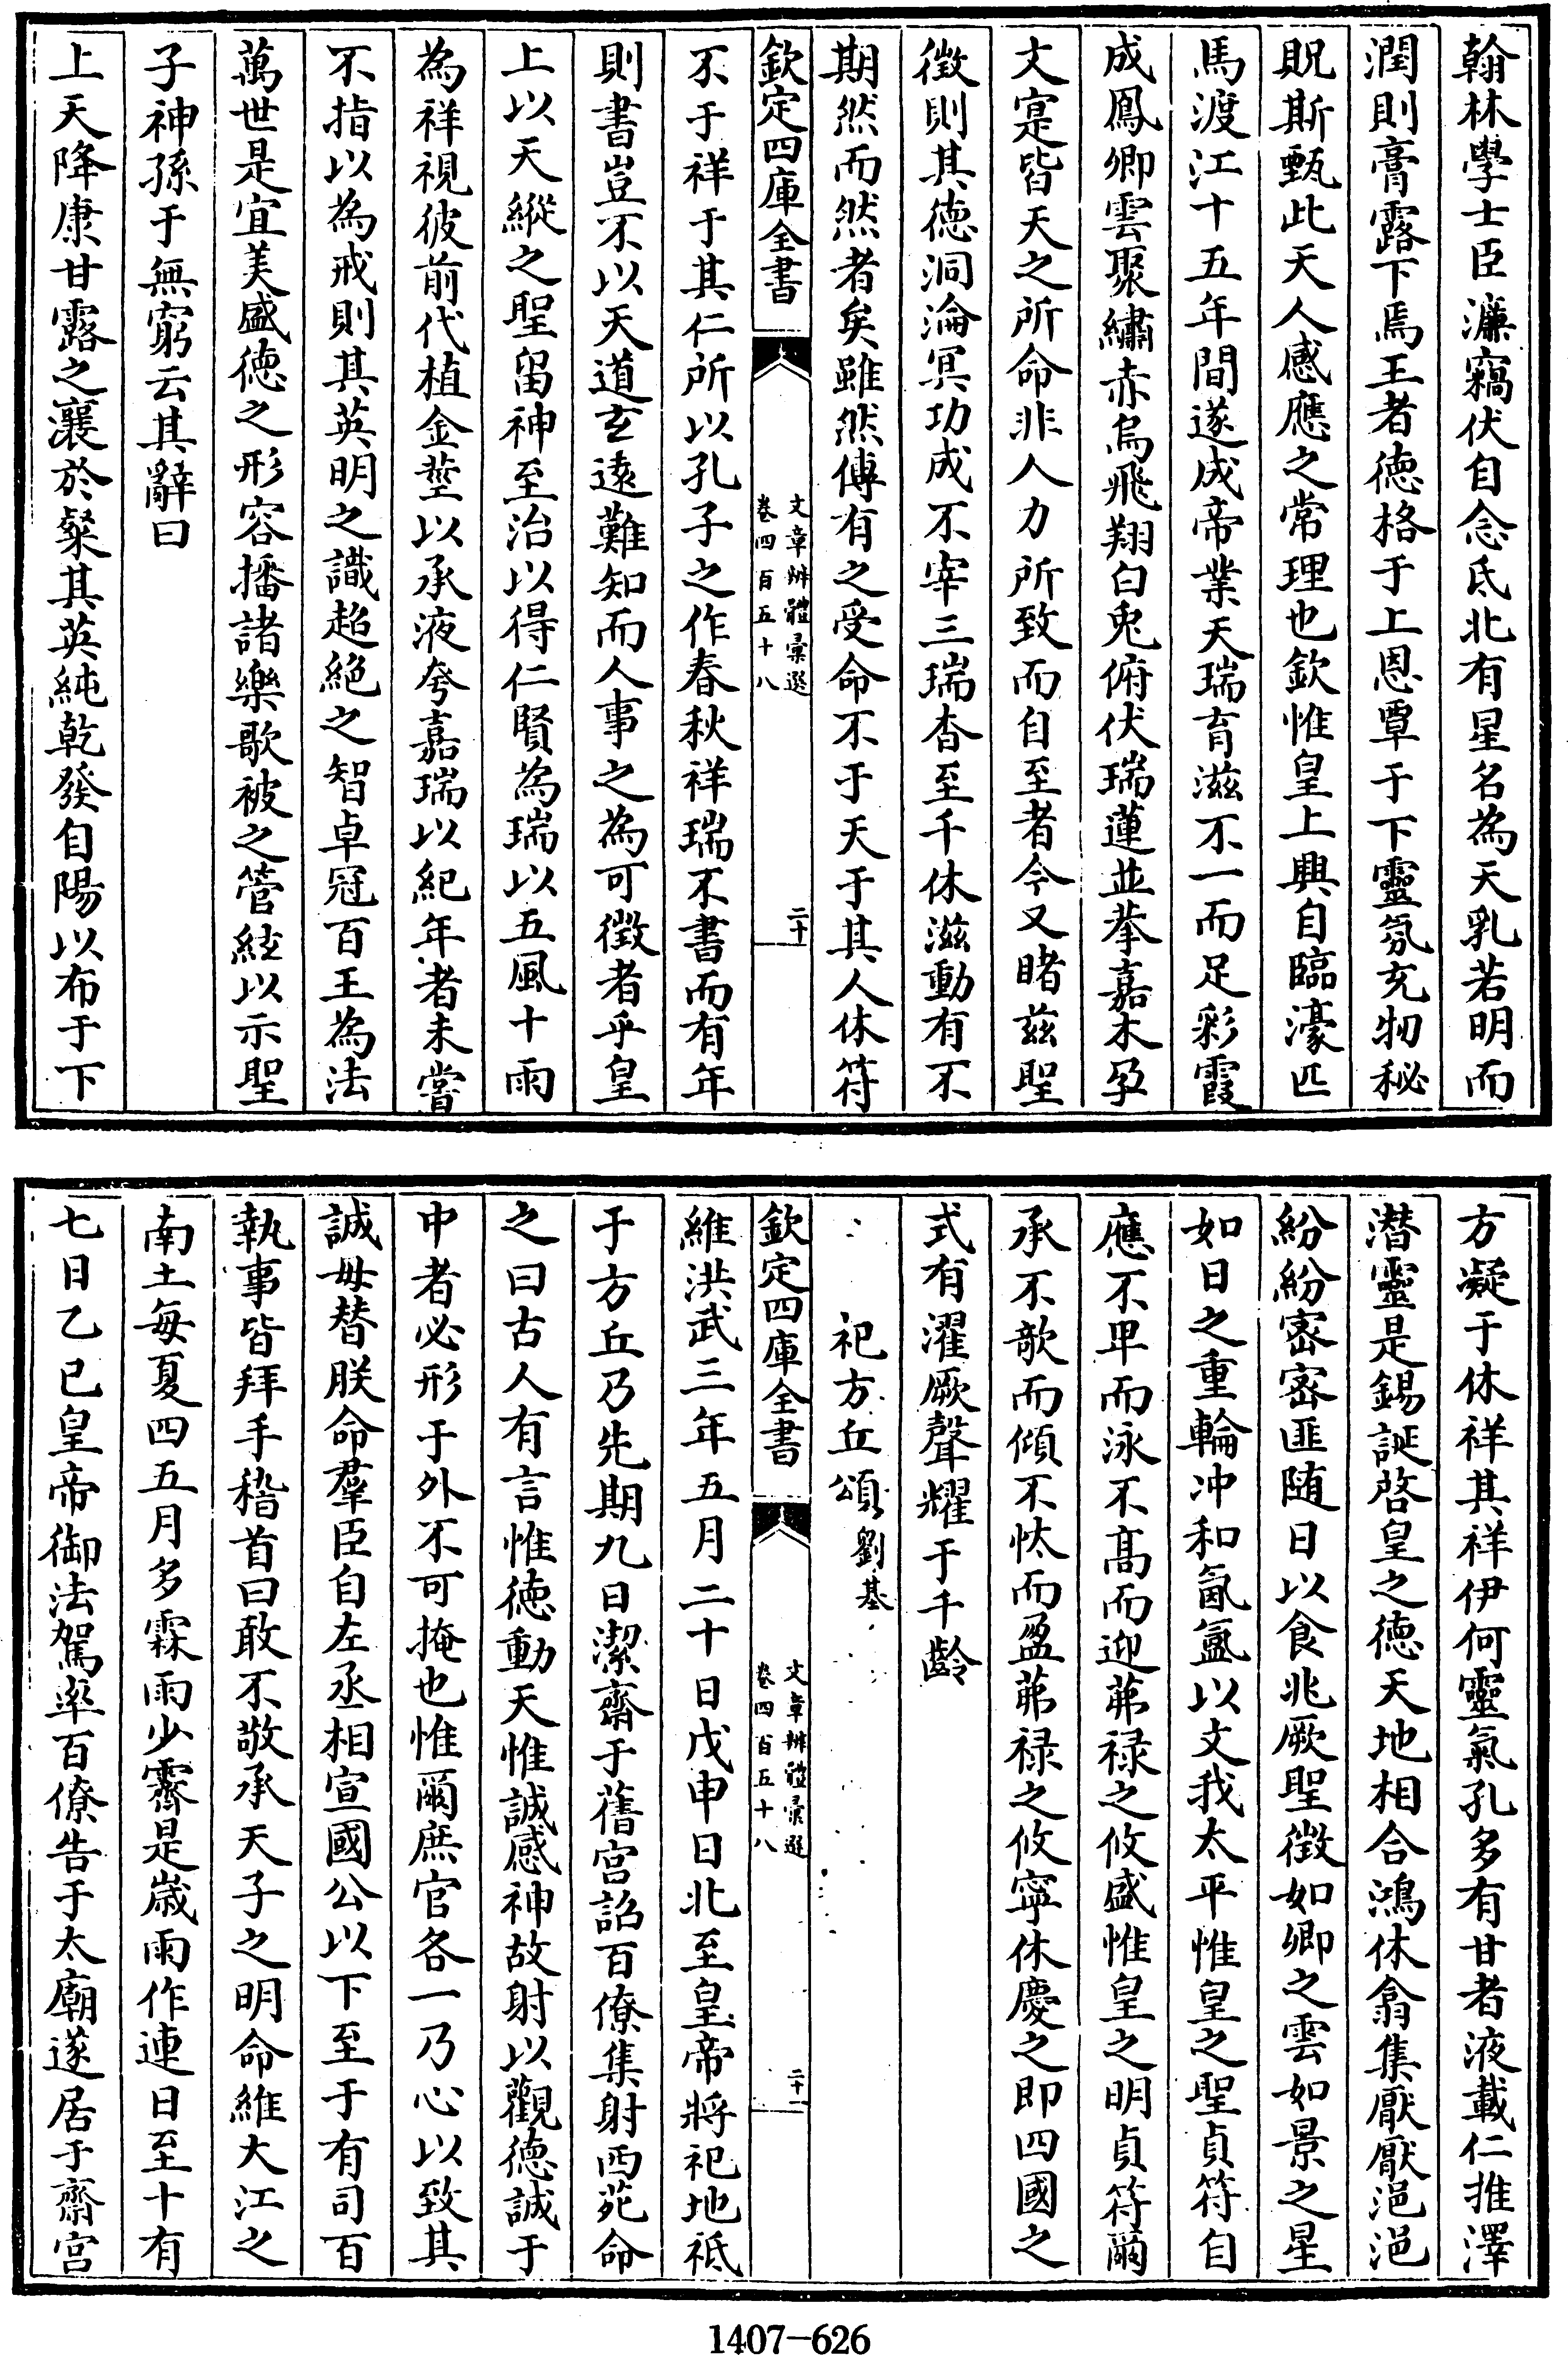 翰林學士臣濂竊伏自念氐北有星名為天乳若明而
潤則膏露下焉王者德格于上恩覃于下靈氛充牣秘
貺斯甄此天人感應之常理也欽惟皇上興自臨濠匹
馬渡江十五年間遂成帝業天瑞育滋不一而足彩霞
成鳳卿雲聚繡赤烏飛翔白兎俯伏瑞蓮並𦬇嘉木孕
文寔皆天之所命非人力所致而自至者今又睹兹聖
徵則其德洞淪冥功成不宰三瑞杳至千休滋動有不
期然而然者矣雖然傳有之受命不于天于其人休符
欽定四庫全書
文章辨體彙選
卷四百五十八
二十
不于祥于其仁所以孔子之作春秋祥瑞不書而有年
則書豈不以天道玄遠難知而人事之為可徵者乎皇
上以天縱之聖留神至治以得仁賢為瑞以五風十雨
為祥視彼前代植金莖以承液夸嘉瑞以紀年者未嘗
不指以為戒則其英明之識超絶之智卓冠百王為法
萬世是宜美盛德之形容播諸樂歌被之管絃以示聖
子神孫于無窮云其辭曰
上天降康甘露之瀼於粲其英純乾發自陽以布于下
方凝于休祥其祥伊何靈氣孔多有甘者液載仁推澤
潜靈是錫誕啓皇之德天地相合鴻休翕集厭厭浥浥
紛紛宻宻匪随日以食兆厥聖徵如卿之雲如景之星
如日之重輪冲和氤氲以文我太平惟皇之聖貞符自
應不卑而泳不髙而迎茀禄之攸盛惟皇之明貞符爾
承不歆而傾不忲而盈茀禄之攸寧休慶之即四國之
式有濯厥聲耀于千齡
祀方丘頌 劉基
欽定四庫全書
文章辨體彙選
卷四百五十八
二十一
維洪武三年五月二十日戊申日北至皇帝將祀地祗
于方丘乃先期九日潔齋于舊宫詔百僚集射西苑命
之曰古人有言惟德動天惟誠感神故射以觀德誠于
中者必形于外不可掩也惟爾庶官各一乃心以致其
誠毋替朕命羣臣自左丞相宣國公以下至于有司百
執事皆拜手稽首曰敢不敬承天子之明命維大江之
南土每夏四五月多霖雨少霽是嵗雨作連日至十有
七日乙巳皇帝御法駕率百僚告于太廟遂居于齋宫
1407-626